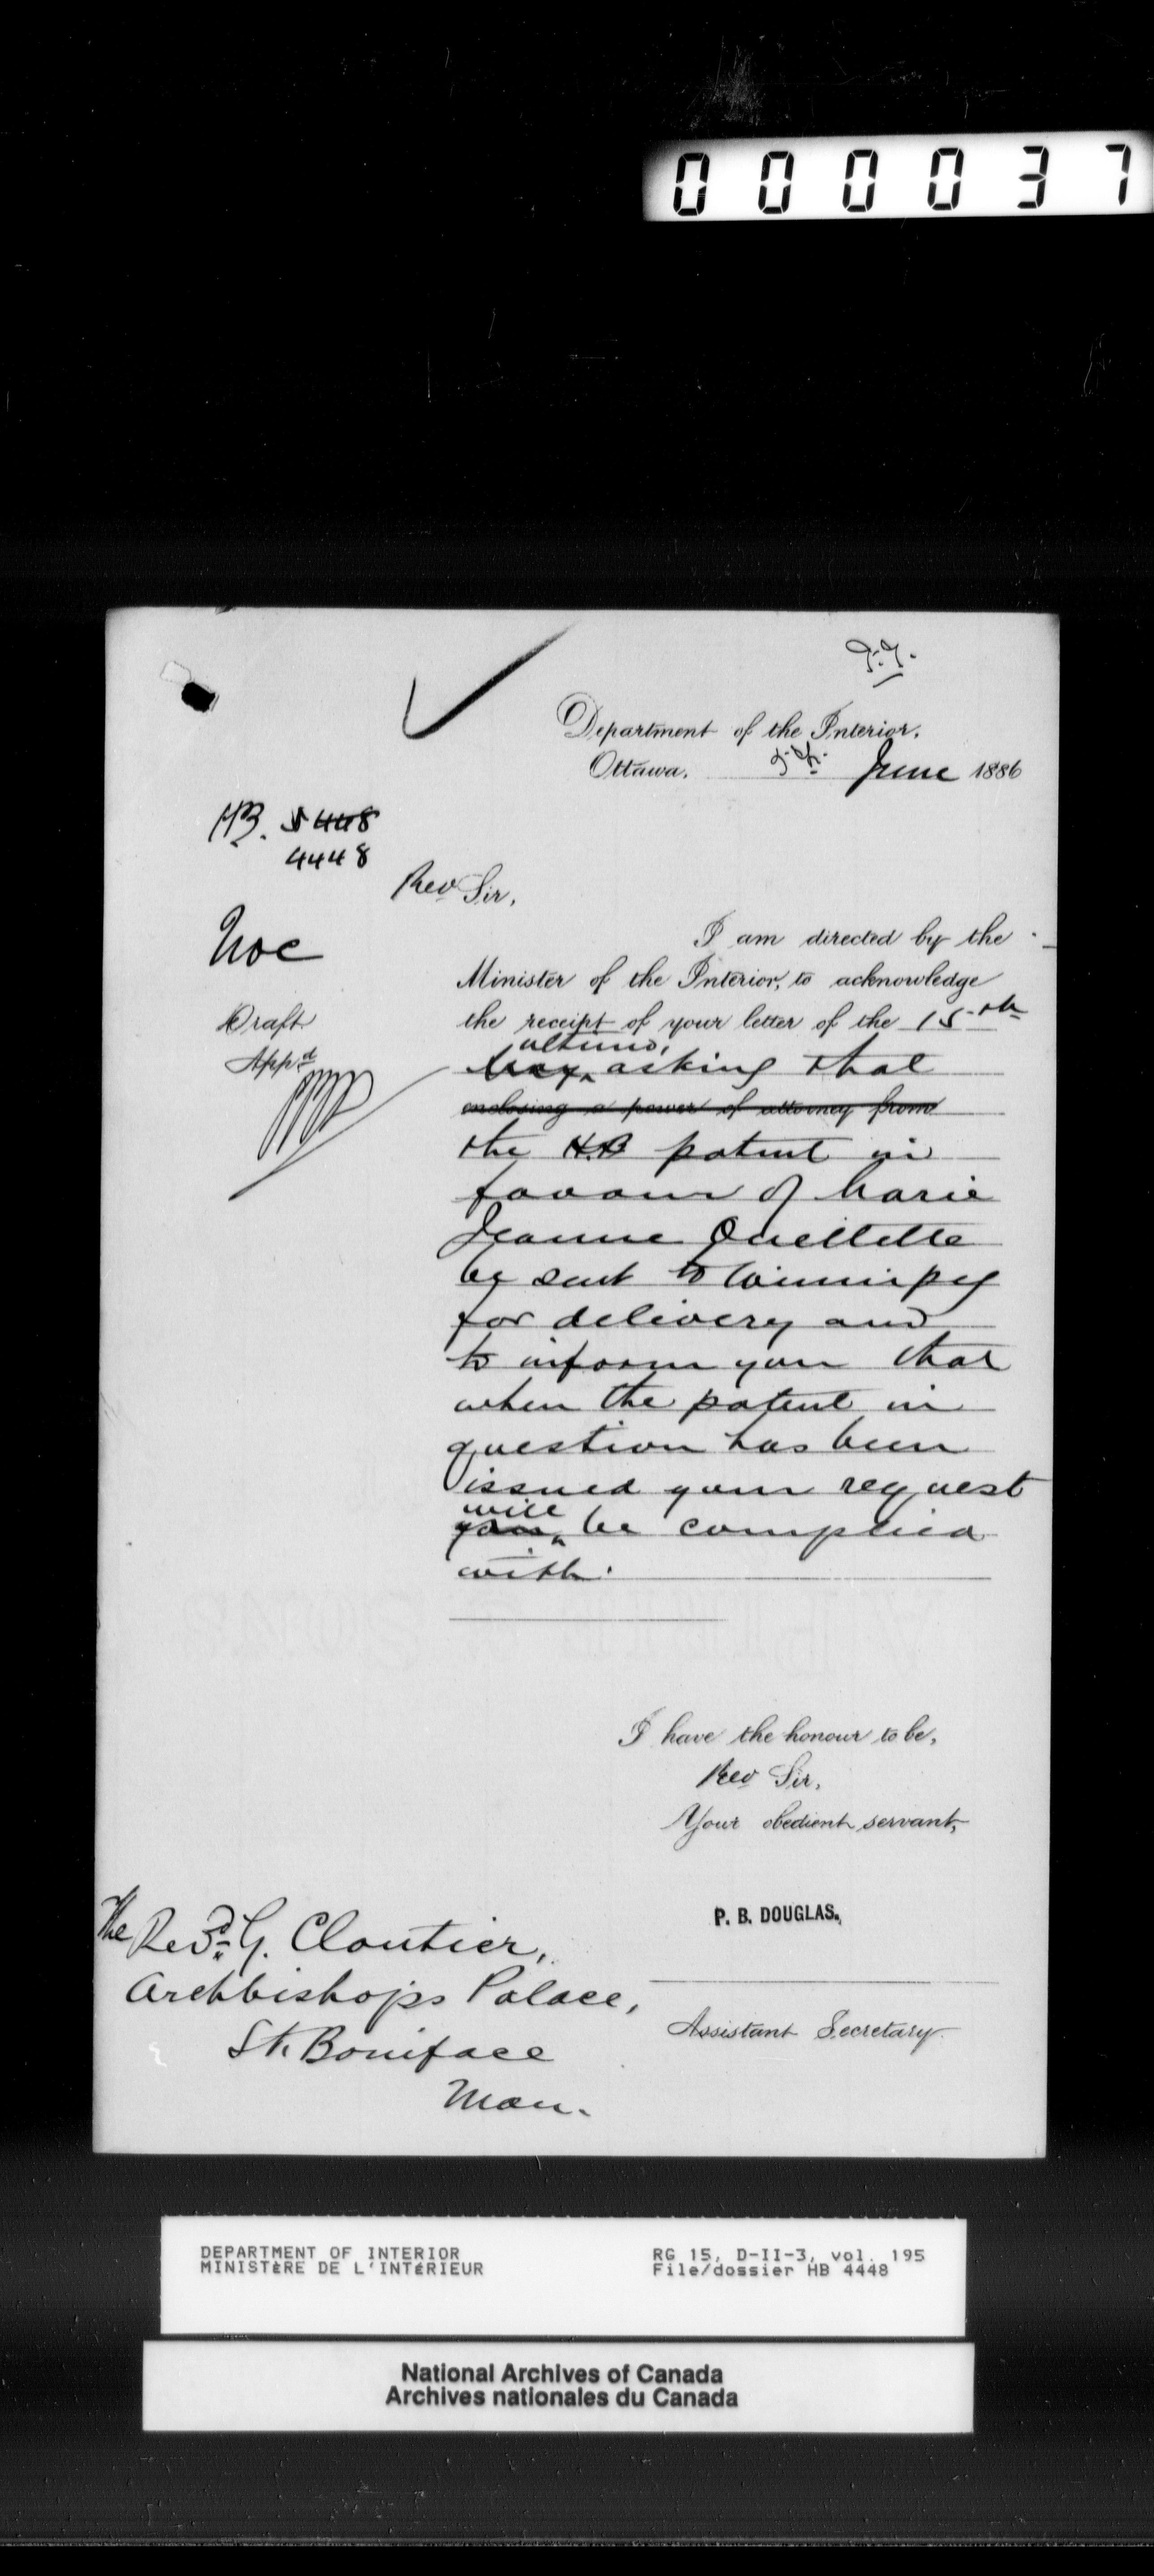 000037
Department of the Interior,
Ottawa, June 1886
HB. 5448
4448
Rev Sir,
I am directed by the
Minister of the Interior, to acknowledge
the receipt of your letter of the 15th
ultimo,
May, asking that
enclosing a power of attorney from
the H.B patent in
favour of Marie
Jeanne Ouellette
be sent to Winnipeg
for delivery and
to inform you that
when the patent in
question has been
issued your request
will
be complied
with.
Draft
Appd
I have the honour to be,
Rev Sir,
Your obedient servant,
P. B. DOUGLAS.
Assistant Secretary.
The Revd. G. Cloutier,
Archbishops Palace,
St. Boniface
Man.
DEPARTMENT OF INTERIOR
MINISTÈRE DE L'INTÉRIEUR
RG 15, D-II-3, vol. 195
File/dossier HB 4448
National Archives of Canada
Archives nationales du Canada